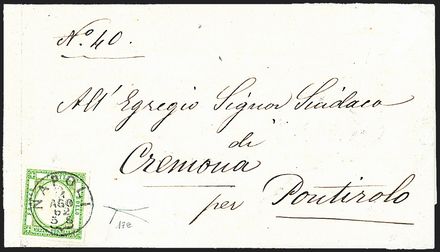 No. 40.
All' Egregio Signor Sindaco
di
Cremona
per Pontirolo
NAPOLI
2
AGO
62